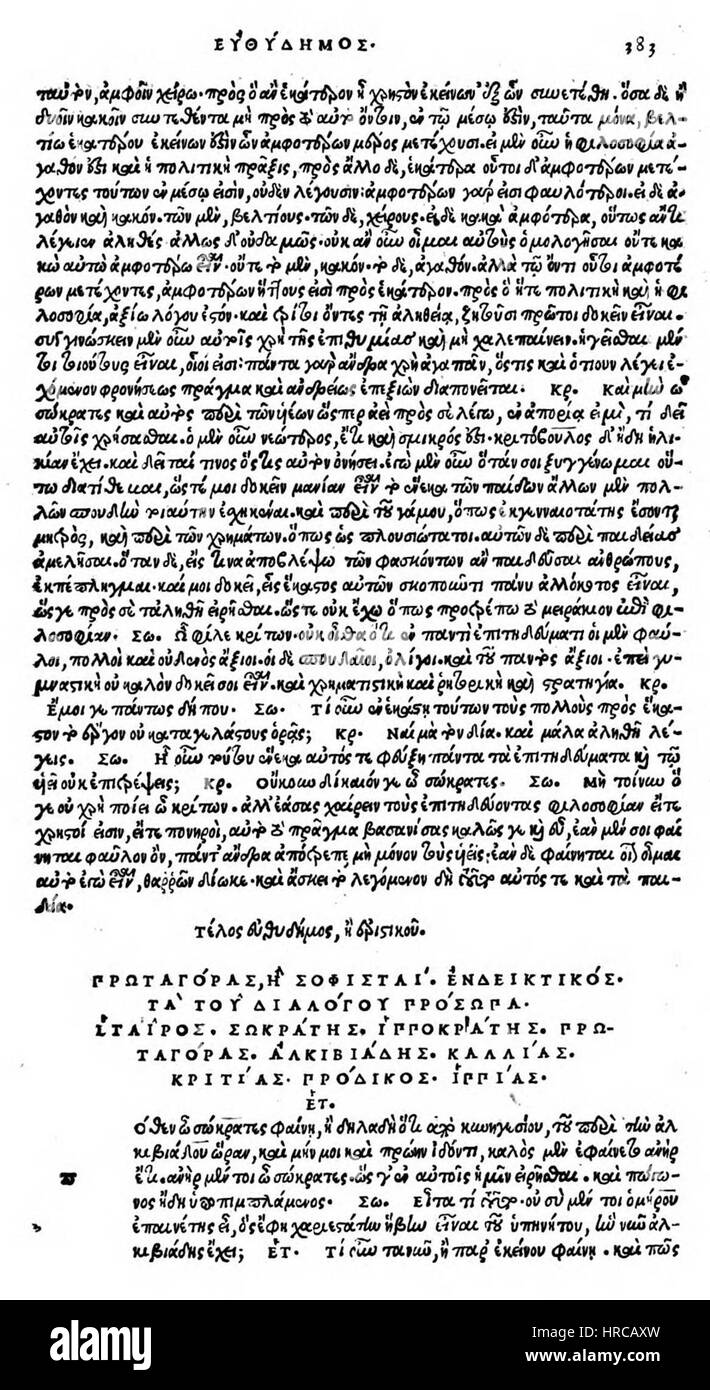 ΕΥ̓ΘΎΔΗΜΟΣ. 383
ταυτὸν, ἀμφοῖν χείρω. πρὸς ὃ ἂν ἑκάτερον ᾖ χρηστὸν ἐκείνων ἐξ ὧν συνετέθη. ὅσα δὲ ἐκ
δυοῖν κακοῖν συντεθέντα μὴ πρὸς τὸ αὐτὸ ὄντοιν, ἐν τῷ μέσῳ ἐστὶν, ταῦτα μόνα, βελ-
τίω ἑκατέρου ἐκείνων ἐστὶν ὧν ἀμφοτέρων μέρος μετέχουσι. εἰ μὲν οὖν ἡ φιλοσοφία ἀ-
γαθὸν ἐστι καὶ ἡ πολιτικὴ πρᾶξις, πρὸς ἄλλο δὲ, ἑκατέρα οὗτοι δ' ἀμφοτέρων μετέ-
χοντες τούτων ἐν μέσῳ εἰσὶν, οὐδὲν λέγουσιν: ἀμφοτέρων γάρ εἰσι φαυλότεροι. εἰ δὲ ἀ-
γαθὸν καὶ κακόν. τῶν μὲν, βελτίους. τῶν δὲ, χείρους. εἰ δὲ κακὰ ἀμφότερα, οὕτως ἄν τι
λέγοιεν ἀληθὲς ἄλλως δ' οὐδαμῶς. οὐκ ἂν οὖν οἶμαι αὐτοὺς ὁμολογῆσαι οὔτε κα
κὼ αὐτὼ ἀμφοτέρω εἶναι. οὔτε τὸ μὲν, κακόν. τὸ δὲ, ἀγαθόν. ἀλλὰ τῷ ὄντι οὗτοι ἀμφοτέ
ρων μετέχοντες, ἀμφοτέρων ἥττους εἰσὶ πρὸς ἑκάτερον. πρὸς ὅ ἥτε πολιτικὴ καὶ ἡ φι
λοσοφία, ἀξίω λόγου ἐστόν. καὶ τρίτοι ὄντες τῇ ἀληθείᾳ, ζητοῦσι πρῶτοι δοκεῖν εἶναι.
συγγινώσκειν μὲν οὖν αὐτοῖς χρὴ τῆς ἐπιθυμίας καὶ μὴ χαλεπαίνειν. ἡγεῖσθαι μὲν
τοι τοιούτους εἶναι, οἷοί εἰσι: πάντα γὰρ ἄνδρα χρὴ ἀγαπᾶν, ὅστις καὶ ὁτιοῦν λέγει ἐ-
χόμενον φρονήσεως πρᾶγμα καὶ ἀνδρείως ἐπεξιὼν διαπονεῖται. Κρ. Καὶ μὴν ὦ
σώκρατες καὶ αὐτὸς περὶ τῶν ὑέων ὥσπερ ἀεὶ πρὸς σὲ λέγω, ἐν ἀπορίᾳ εἰμὶ, τί δεῖ
αὐτοῖς χρήσασθαι. ὁ μὲν οὖν νεώτερος, ἔτι καὶ σμικρός ἐστι. κριτόβουλος δ' ἤδη ἡλι-
κίαν ἔχει. καὶ δεῖται τινος ὅστις αὐτὸν ὀνήσει. ἐγὼ μὲν οὖν ὅταν σοι ξυγγένωμαι οὕ-
τω διατίθεμαι, ὥστέ μοι δοκεῖν μανίαν εἶναι τὸ ἕνεκα τῶν παίδων ἄλλων μὲν πολ-
λῶν σπουδὴν τοιαύτην ἐσχηκέναι. καὶ περὶ τοῦ γάμου, ὅπως ἐκ γενναιοτάτης ἔσονται
μητρὸς, καὶ περὶ τῶν χρημάτων. ὅπως ὡς πλουσιώτατοι. αὐτῶν δὲ περὶ παιδείας
ἀμελῆσαι. ὅταν δὲ, εἴς τινα ἀποβλέψω τῶν φασκόντων ἂν παιδεῦσαι ἀνθρώπους,
ἐκπέπληγμαι. καί μοι δοκεῖ, εἷς ἕκαστος αὐτῶν σκοποῦντι πάνυ ἀλλόκοτος εἶναι,
ὥς γε πρὸς σὲ τἀληθῆ εἰρῆσθαι. ὥστε οὐκ ἔχω ὅπως προτρέπω τὸ μειράκιον ἐπὶ φι-
λοσοφίαν. Σω. Ω φίλε κρίτων. οὐκ οἶσθα ὅτι ἐν παντὶ ἐπιτηδεύματι οἱ μὲν φαῦ-
λοι, πολλοὶ καὶ οὐδενὸς ἄξιοι. οἱ δὲ σπουδαῖοι, ὀλίγοι. καὶ τοῦ παντὸς ἄξιοι. ἐπεὶ γυ-
μναστικὴ οὐ καλὸν δοκεῖ σοι εἶναι. καὶ χρηματιστικὴ καὶ ῥητορικὴ καὶ στρατηγία. Κρ.
Ἔμοι γε πάντως δήπου. Σω. Τί οὖν ἐν ἑκάστῃ τούτων τοὺς πολλοὺς πρὸς ἕκα-
στον τὸ ἔργον οὐ καταγελάστους ὁρᾷς; Κρ. Ναὶ μὰ τὸν δία. καὶ μάλα ἀληθῆ λέ-
γεις. Σω. Η οὖν τούτου ἕνεκα αὐτός τε φεύξῃ πάντα τὰ ἐπιτηδεύματα καὶ τῷ
ὑεῖ οὐκ ἐπιτρέψεις; Κρ. Οὔκουν δίκαιόν γε ὦ σώκρατες. Σω. Μὴ τοίνυν ὅ
γε οὐ χρὴ ποίει ὦ κρίτων. ἀλλ' ἐάσας χαίρειν τοὺς ἐπιτηδεύοντας φιλοσοφίαν εἴτε
χρηστοί εἰσιν, εἴτε πονηροὶ, αὐτὸ τὸ πρᾶγμα βασανίσας καλῶς γε καὶ εὖ, ἐὰν μέν σοι φαί
νηται φαῦλον ὂν, πάντ' ἄνδρα ἀπότρεπε μὴ μόνον τοὺς ὑεῖς: ἐὰν δὲ φαίνηται οἷον οἶμαι
αὐτὸ ἐγὼ εἶναι, θαρρῶν δίωκε. καὶ ἄσκει τὸ λεγόμενον δὴ τοῦτο αὐτός τε καὶ τὰ παι-
δία.
Τέλος εὐθυδήμος, ἢ ἐριστικοῦ.
ΠΡΩΤΑΓΌΡΑΣ, Ἢ ΣΟΦΙΣΤΑΊ. ἘΝΔΕΙΚΤΙΚΌΣ.
ΤᾺ ΤΟΥ͂ ΔΙΑΛΌΓΟΥ ΠΡΌΣΩΠΑ.
ἙΤΑΙ͂ΡΟΣ. ΣΩΚΡΆΤΗΣ. ἹΠΠΟΚΡΆΤΗΣ. ΠΡΩ-
ΤΑΓΌΡΑΣ. ἈΛΚΙΒΙΆΔΗΣ. ΚΑΛΛΊΑΣ.
ΚΡΙΤΊΑΣ. ΠΡΌΔΙΚΟΣ. ἹΠΠΊΑΣ.
ἙΤ.
Οθεν ὦ σώκρατες φαίνῃ, ἢ δηλαδὴ ὅτι ἀπὸ κυνηγεσίου, τοῦ περὶ τὴν ἀλ
κιβιάδου ὥραν, καὶ μήν μοι καὶ πρώην ἰδόντι, καλὸς μὲν ἐφαίνετο ἀνὴρ
ἔτι. ἀνὴρ μέν τοι ὦ σώκρατες. ὥς γ' ἐν αὐτοῖς ἡμῖν εἰρῆσθαι. καὶ πώγω-
π νος ἤδη ὑποπιμπλάμενος. Σω. Εἶτα τί τοῦτο. οὐ σὺ μέν τοι ὁμήρου
ἐπαινέτης εἶ, ὃς ἔφη χαριεστάτην ἥβην εἶναι τοῦ ὑπηνήτου, ἣν νῦν ἀλ-
κιβιάδης ἔχει; ἙΤ. Τί οὖν τανῦν, ἦ παρ' ἐκείνου φαίνῃ. καὶ πῶς
alamy
Image ID: HRCAXW
www.alamy.com